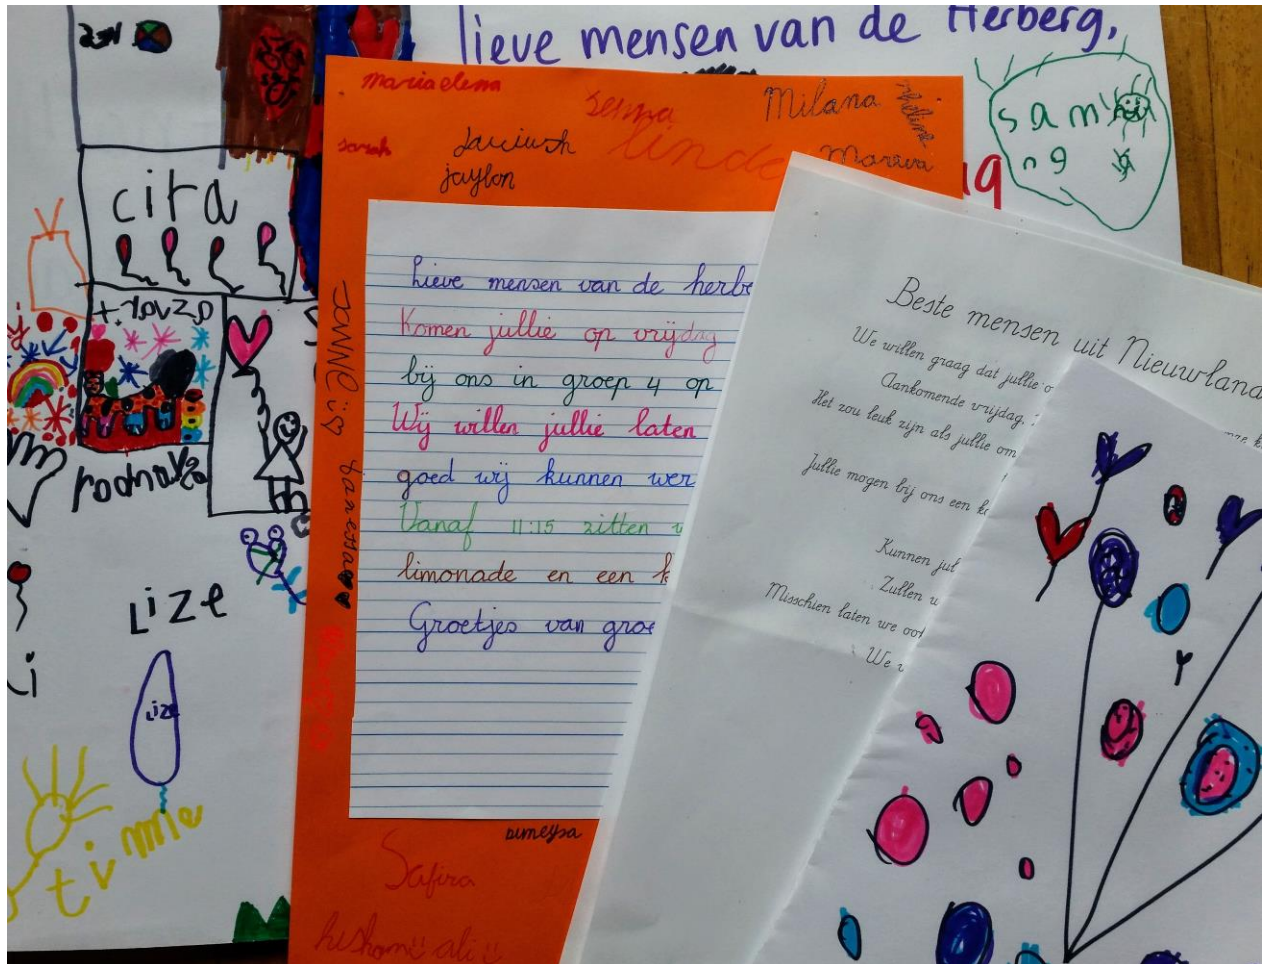 lieve mensen van de Herberg,
sam
ng
cita
Lize
Lize
timme
mariaelena
senna
Milana
sarah
jaylon
linde
Lieve mensen van de herbe
Komen jullie op vrijdag
bij ons in groep 4 op
Wij willen jullie laten
goed wij kunnen wer
Vanaf 11:15 zitten
limonade en een
Groetjes van groe
sumeysa
Safira
hisham ali
Beste mensen uit Nieuwland
We willen graag dat jullie o
Aankomende vrijdag,
Het zou leuk zijn als jullie om
Jullie mogen bij ons een
Kunnen jul
Zullen
Misschien laten we oo
We